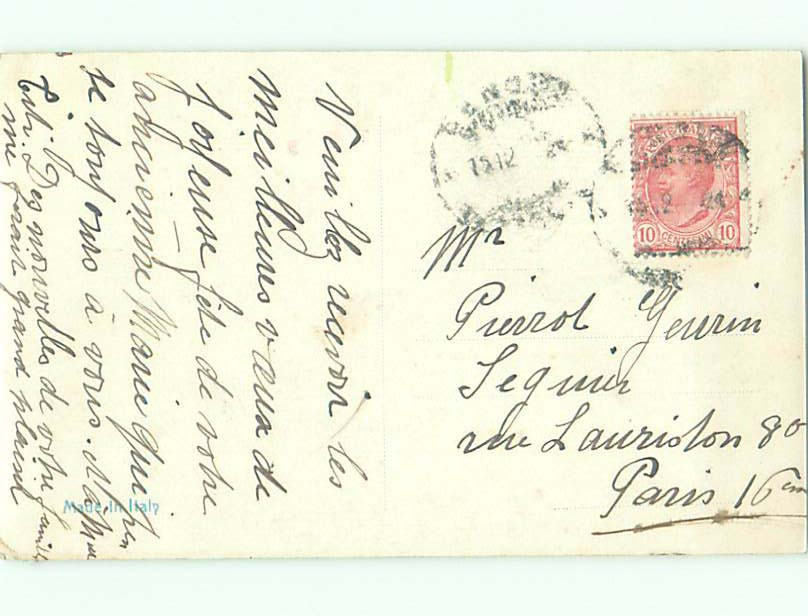 Veuillez recevoir les
meilleures vœux de
joyeuse fête de votre
ancienne Marie qui
se toujours à vous.
Des nouvelles de votre famille
me ferait grand plaisir
Mr
Pierrot Geurin
Seguin
rue Lauriston 80
Paris 16em
Made In Italy
POSTE ITALIANE
10 CENTESIMI 10
15 12